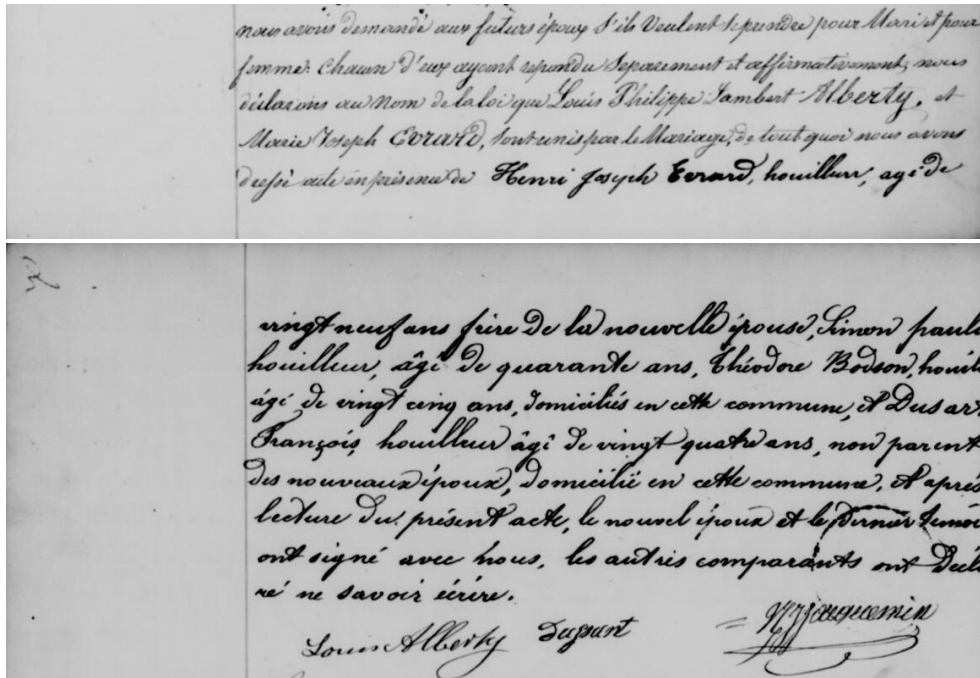 nous avons demandé aux futurs époux s'ils veulent se prendre pour Mari et pour
femme. Chacun d'eux ayant repondu separement et affirmativement, nous
déclarons au Nom de la loi que Louis Philippe Lambert Alberty, et
Marie Joseph Evrard, sont unis par le Mariage, de tout quoi nous avons
dressé acte en présence de Henri Joseph Evrard, houilleur, agé de
vingt neuf ans frère de la nouvelle épouse, Simon
houilleur, âgé de quarante ans, Théodore Bodson,
âgé de vingt cinq ans, domiciliés en cette commune, et
François, houilleur âgé de vingt quatre ans, non parent
des nouveaux époux, domicilié en cette commune, et après
lecture du présent acte, le nouvel époux et le dernier
ont signé avec nous, les autres comparants ont
ré ne savoir écrire.
Louis Alberty Jacquemin